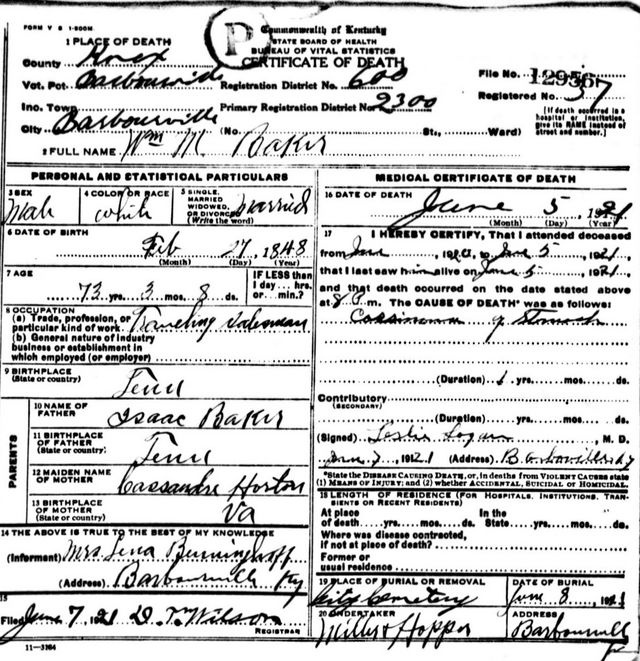 FORM V S 1-500M
P
Commonwealth of Kentucky
STATE BOARD OF HEALTH
BUREAU OF VITAL STATISTICS
CERTIFICATE OF DEATH
1 PLACE OF DEATH
County Knox
Vot. Pct. Barbourville
Registration District No. 600
File No. 12956
Inc. Town
Primary Registration District No. 2300
Registered No. 37
City Barbourville (No St., Ward)
[If death occurred in a hospital or institution, give its NAME instead of street and number.]
2 FULL NAME Wm M. Baker
PERSONAL AND STATISTICAL PARTICULARS
3 SEX Male
4 COLOR OR RACE White
5 SINGLE, MARRIED WIDOWED, OR DIVORCED (Write the word) Married
6 DATE OF BIRTH
Feb 27, 1848
(Month) (Day) (Year)
7 AGE
73 yrs. 3 mos. 8 ds.
IF LESS than 1 day....hrs. or....min.?
8 OCCUPATION
(a) Trade, profession, or particular kind of work. Traveling Salesman
(b) General nature of industry business or establishment in which employed (or employer)
9 BIRTHPLACE
(State or country) Tenn
PARENTS
10 NAME OF FATHER Isaac Baker
11 BIRTHPLACE OF FATHER (State or country) Tenn
12 MAIDEN NAME OF MOTHER Cassandre Horton
13 BIRTHPLACE OF MOTHER (State or country) Va
14 THE ABOVE IS TRUE TO THE BEST OF MY KNOWLEDGE
(Informant) Mrs. Lena
(Address) Barbourville Ky
15
Filed June 7, 1921 D. T. Wilson
REGISTRAR
11-3164
MEDICAL CERTIFICATE OF DEATH
16 DATE OF DEATH
June 5, 1921
(Month) (Day) (Year)
17 I HEREBY CERTIFY, That I attended deceased
from June, 192 to June 5, 1921
that I last saw him alive on June 5, 1921
and that death occurred on the date stated above
at 8 P.m. The CAUSE OF DEATH* was as follows:
Carcinoma of Stomach
(Duration) 1 yrs. mos. ds.
Contributory
(SECONDARY)
(Duration) yrs. mos. ds.
(Signed) Leslie Logan, M. D.
June 7, 1921 (Address) Barbourville Ky
*State the DISEASE CAUSING DEATH, or, in deaths from VIOLENT CAUSES state (1) MEANS OF INJURY; and (2) whether ACCIDENTAL, SUICIDAL or HOMICIDAL.
18 LENGTH OF RESIDENCE (FOR HOSPITALS, INSTITUTIONS, TRANSIENTS OR RECENT RESIDENTS)
At place of death yrs. mos. ds. In the State yrs. mos. ds.
Where was disease contracted, if not at place of death?
Former or usual residence
19 PLACE OF BURIAL OR REMOVAL
City Cemetery
DATE OF BURIAL
June 8, 1921
20 UNDERTAKER
Miller & Hopper
ADDRESS
Barbourville